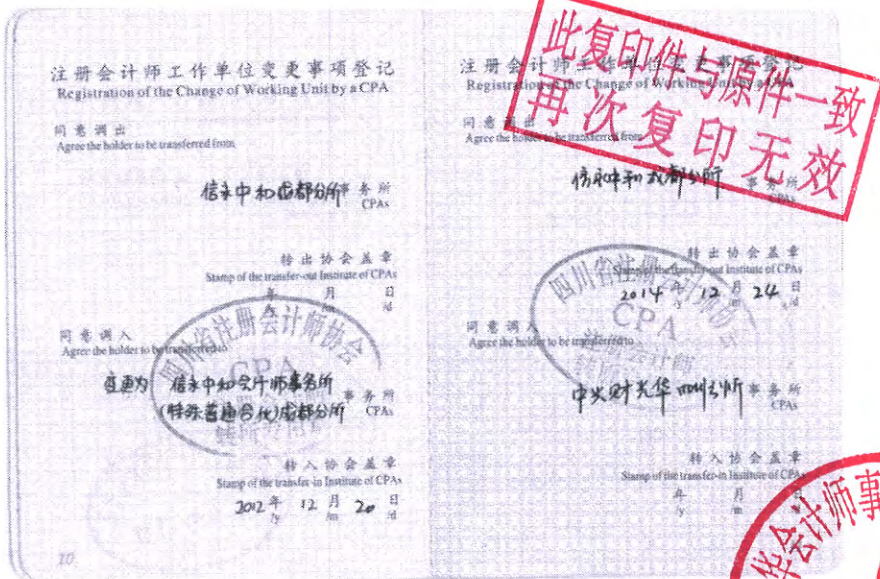 注册会计师工作单位变更事项登记
Registration of the Change of Working Unit by a CPA
同意调出
Agree the holder to be transferred from
信永中和成都分所 事务所
CPAs
转出协会盖章
Stamp of the transfer-out Institute of CPAs
年 月 日
/y /m /d
同意调入
Agree the holder to be transferred to
变更为 信永中和会计师事务所
(特殊普通合伙)成都分所 事务所
CPAs
四川省注册会计师协会
CPA
转入协会盖章
Stamp of the transfer-in Institute of CPAs
2012 年 12 月 20 日
/y /m /d
10
注册会计师工作单位变更事项登记
Registration of the Change of Working Unit by a CPA
同意调出
Agree the holder to be transferred from
信永中和成都分所 事务所
CPAs
转出协会盖章
Stamp of the transfer-out Institute of CPAs
2014 年 12 月 24 日
/y /m /d
四川省注册会计师协会
CPA
注册会计师
同意调入
Agree the holder to be transferred to
中兴财光华 四川分所 事务所
CPAs
转入协会盖章
Stamp of the transfer-in Institute of CPAs
年 月 日
/y /m /d
此复印件与原件一致
再次复印无效
华会计师事